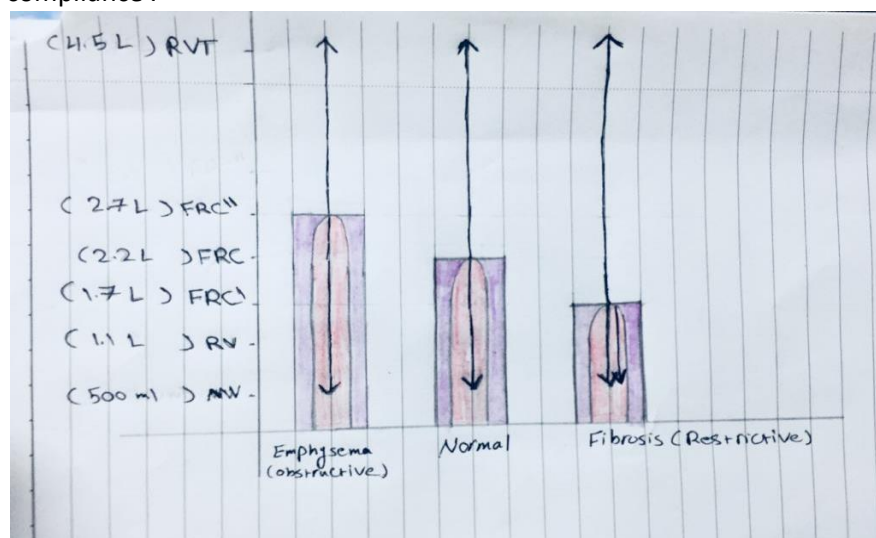 compliance .
(4.5 L) RVT
(2.7 L) FRC"
(2.2 L) FRC
(1.7 L) FRC'
(1.1 L) RV
(500 ml)
Emphysema
(obstructive)
Normal
Fibrosis (Restrictive)